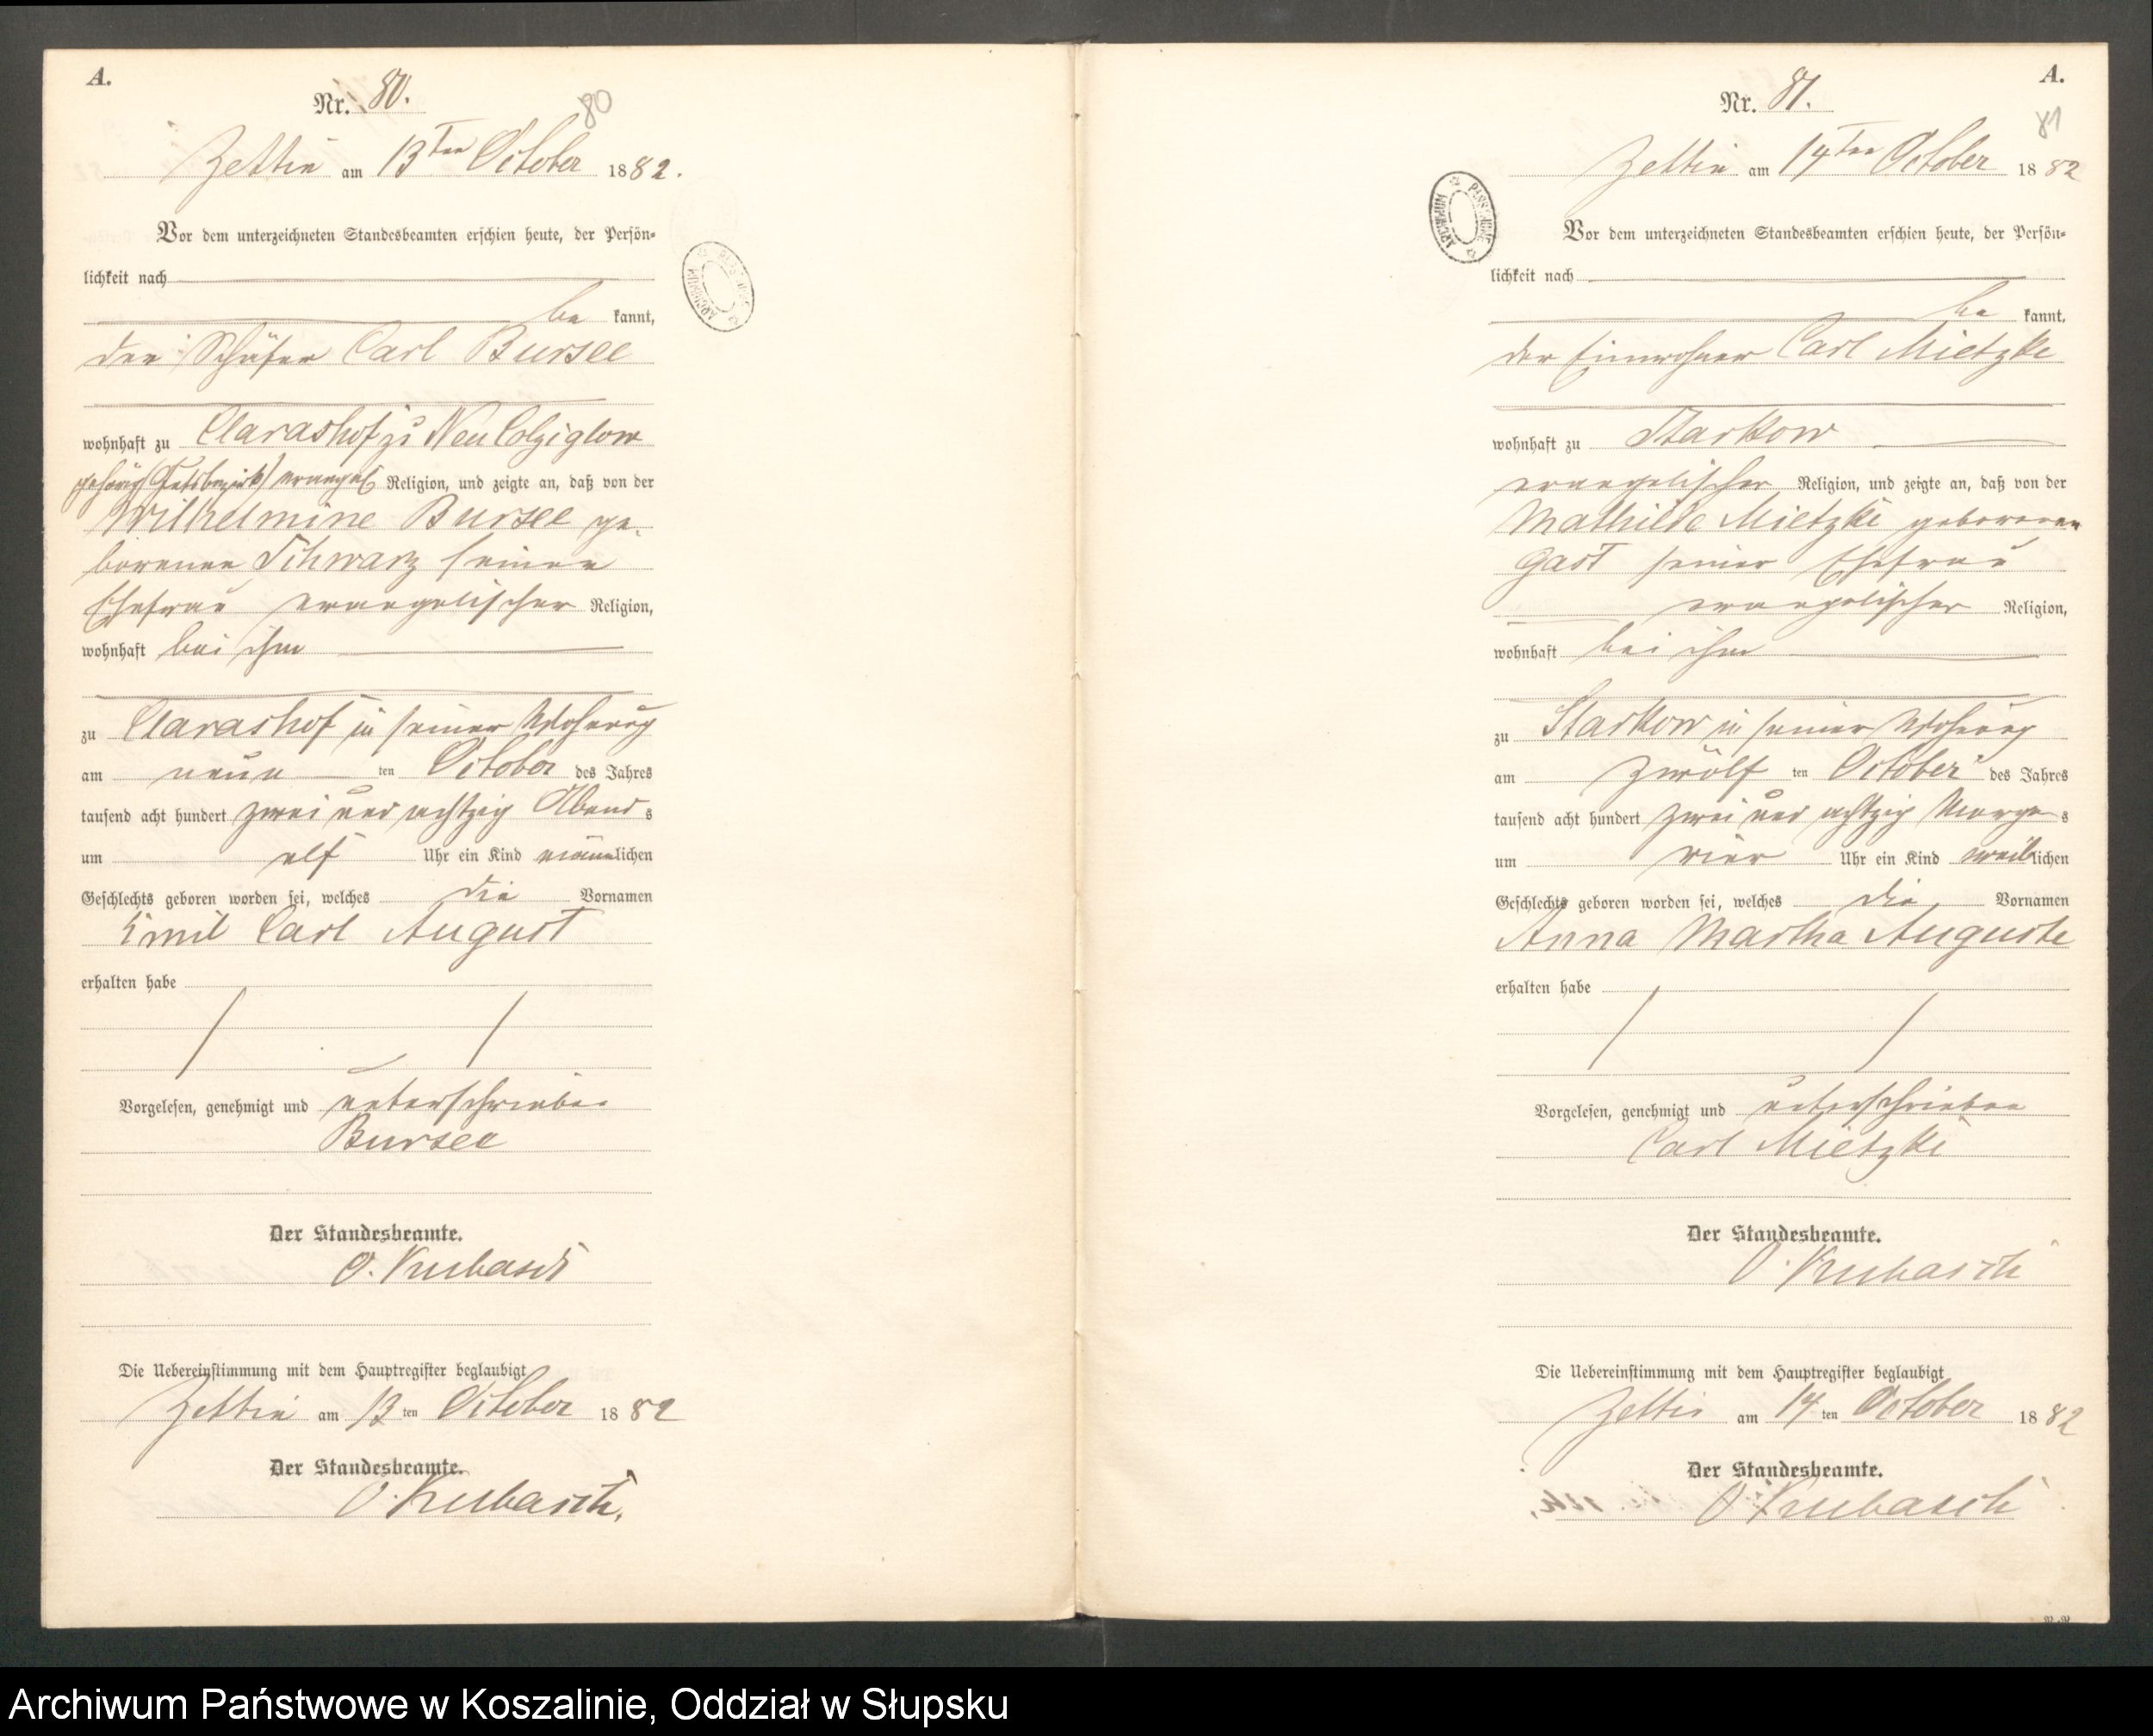 A.
Nr. 80.
80
Zettin am 13ten October 1882.
Vor dem unterzeichneten Standesbeamten erschien heute, der Persön-
lichkeit nach
be kannt,
der Schäfer Carl Bursee
wohnhaft zu Clarashof zu Neu Colziglow
gehörig (Gutsbezirk) evangel Religion, und zeigte an, daß von der
Wilhelmine Bursee ge-
borenen Schwarz seiner
Ehefrau evangelischer Religion,
wohnhaft bei ihm
zu Clarashof in seiner Wohnung
am neun ten October des Jahres
tausend acht hundert zwei und achtzig Abends
um elf Uhr ein Kind männlichen
Geschlechts geboren worden sei, welches die Vornamen
Emil Carl August
erhalten habe
Vorgelesen, genehmigt und unterschrieben
Bursee
Der Standesbeamte.
O. Kubasch
Die Uebereinstimmung mit dem Hauptregister beglaubigt
Zettin am 13 ten October 1882
Der Standesbeamte.
O. Kubasch.
A.
Nr. 81.
81
Zettin am 14ten October 1882
ARCHIWUM PAŃSTWOWE
Vor dem unterzeichneten Standesbeamten erschien heute, der Persön-
lichkeit nach
be kannt,
der Einwohner Carl Mietzke
wohnhaft zu Starkow
evangelischer Religion, und zeigte an, daß von der
Mathilde Mietzke geborenen
Gast seiner Ehefrau
evangelischer Religion,
wohnhaft bei ihm
zu Starkow in seiner Wohnung
am zwölf ten October des Jahres
tausend acht hundert zwei und achtzig Morgens
um vier Uhr ein Kind weiblichen
Geschlechts geboren worden sei, welches die Vornamen
Anna Martha Auguste
erhalten habe
Vorgelesen, genehmigt und unterschrieben
Carl Mietzke
Der Standesbeamte.
O. Kubasch
Die Uebereinstimmung mit dem Hauptregister beglaubigt
Zettin am 14 ten October 1882
Der Standesbeamte.
O Kubasch
Archiwum Państwowe w Koszalinie, Oddział w Słupsku